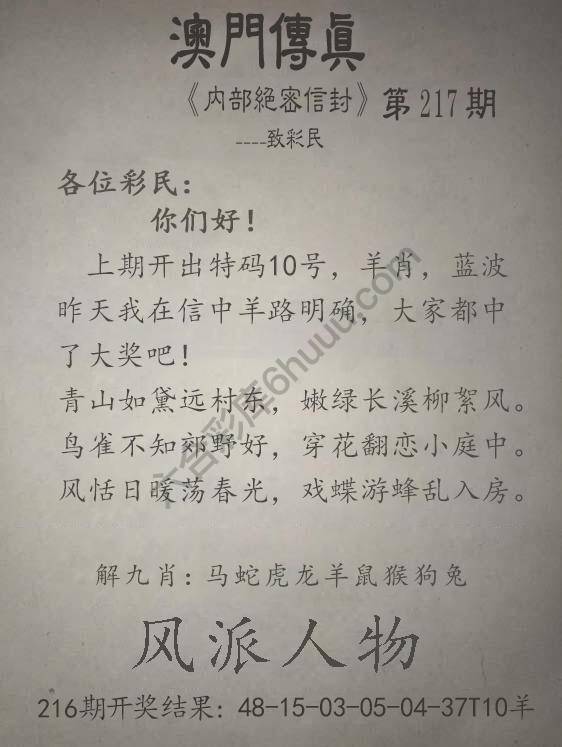 澳門傳真
《内部絕密信封》第217期
----致彩民
各位彩民：
你们好！
上期开出特码10号，羊肖，蓝波
昨天我在信中羊路明确，大家都中
了大奖吧！
青山如黛远村东，嫩绿长溪柳絮风。
鸟雀不知郊野好，穿花翻恋小庭中。
风恬日暖荡春光，戏蝶游蜂乱入房。
解九肖：马蛇虎龙羊鼠猴狗兔
风派人物
216期开奖结果：48-15-03-05-04-37T10羊
六合彩库6huuu.com